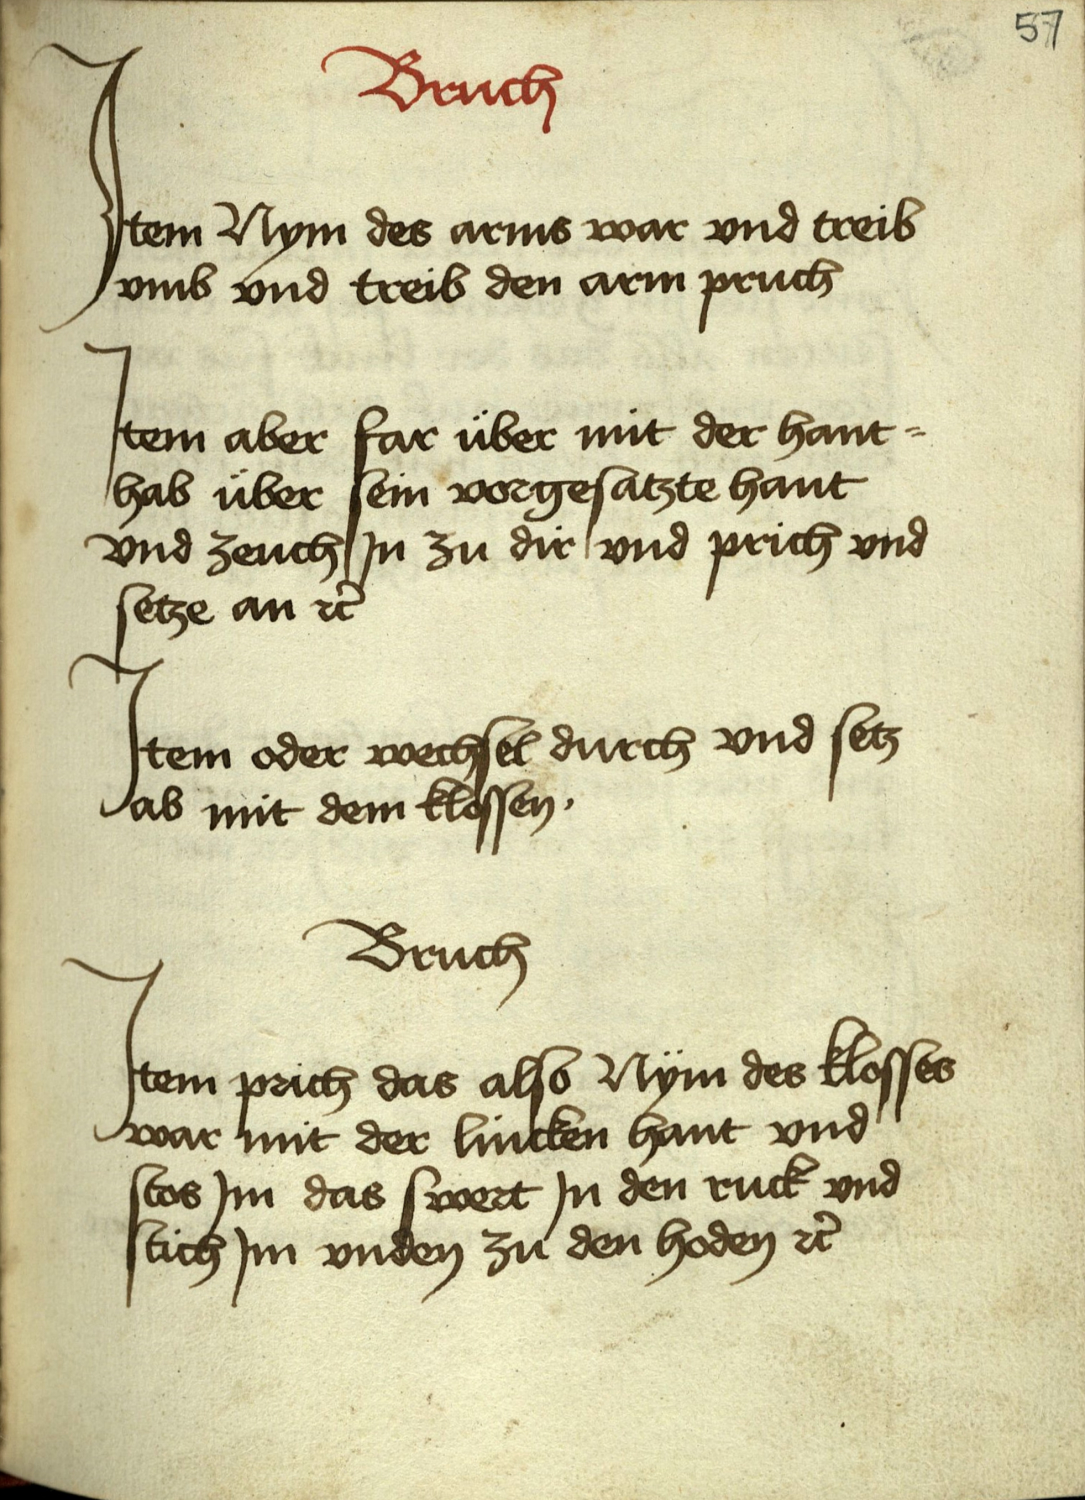 57
Bruch
Item Nym des arms war vnd treib
vmb vnd treib den arm pruch
Item aber far über mit der hant=
hab über sein vorgesatzte hant
vnd zeuch Jn zu dir vnd prich vnd
setze an ꝛc̃
Item oder wechsel durch vnd setz
ab mit dem klossen.
Bruch
Item prich das also Nÿm des klosses
war mit der lincken hant vnd
stos Jm das swert Jn den ruck vnd
stich Jm vnden zu den hoden ꝛc̃